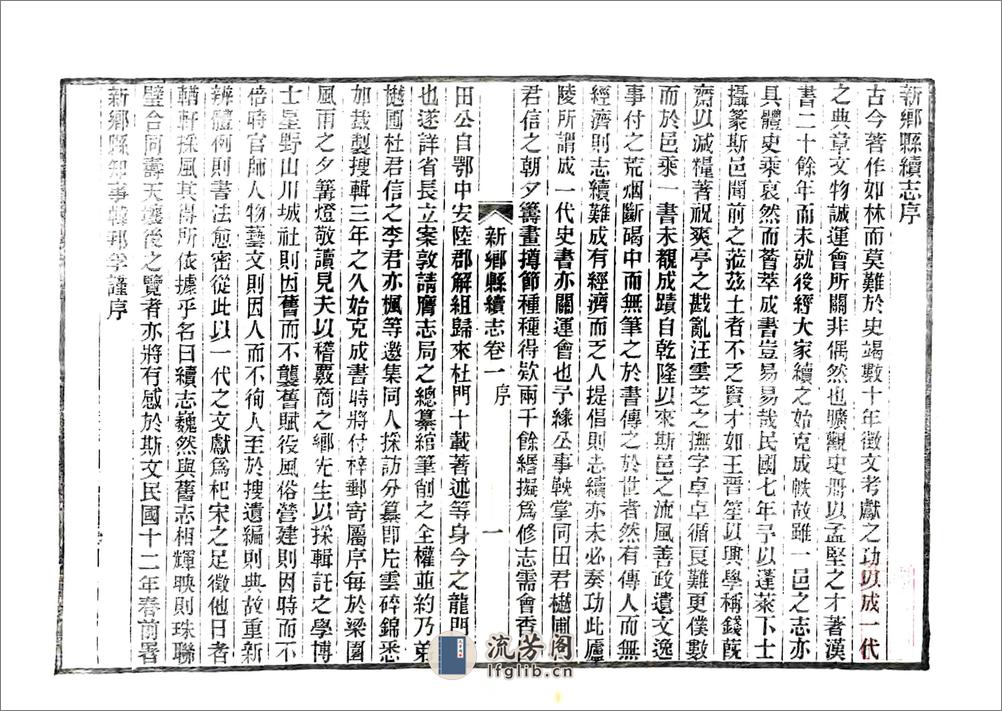 新鄉縣續志序
古今著作如林而莫難於史竭數十年徵文考獻之功以成一代
之典章文物誠運會所關非偶然也曠觀史冊以孟堅之才著漢
書二十餘年而未就後經大家續之始克成帙故雖一邑之志亦
具體史乘裒然而薈萃成書豈易易哉民國七年予以蓬萊下士
攝篆斯邑聞前之蒞茲土者不乏賢才如王晋笙以興學稱錢蔇
齋以減糧著祝爽亭之戡亂汪雲芝之撫字卓卓循良難更僕數
而於邑乘一書未觀成蹟自乾隆以來斯邑之流風善政遺文逸
事付之荒烟斷碣中而無筆之於書傳之於世者然有傳人而無
經濟則志續難成有經濟而乏人提倡則志續亦未必奏功此廬
陵所謂成一代史書亦關運會也予緣公事鞅掌同田君樾圃
君信之朝夕籌畫撙節種種得欵兩千餘緡擬爲修志需會香
新鄉縣續志卷一 序 一
田公自鄂中安陸郡解組歸來杜門十載著述等身今之龍門
也遂詳省長立案敦請膺志局之總纂綰筆削之全權並約乃弟
樾圃杜君信之李君亦楓等邀集同人採訪分纂即片雲碎錦悉
如裁製搜輯三年之久始克成書時將付梓郵寄屬序每於梁園
風雨之夕篝燈敬讀見夫以稽覈商之鄉先生以採輯託之學博
士星野山川城社則因舊而不襲舊賦役風俗營建則因時而不
倍時官師人物藝文則因人而不徇人至於搜遺編則典故重新
辨體例則書法愈密從此以一代之文獻爲杞宋之足徵他日者
輶軒採風其得所依據乎名曰續志巍然與舊志相輝映則珠聯
璧合同壽天壤後之覽者亦將有感於斯文民國十二年春前署
新鄉縣知事韓邦孚謹序
流芳閣
lfglib.cn